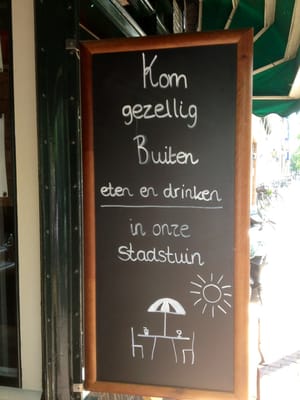 Kom
gezellig
Buiten
eten en drinken
in onze
Stadstuin